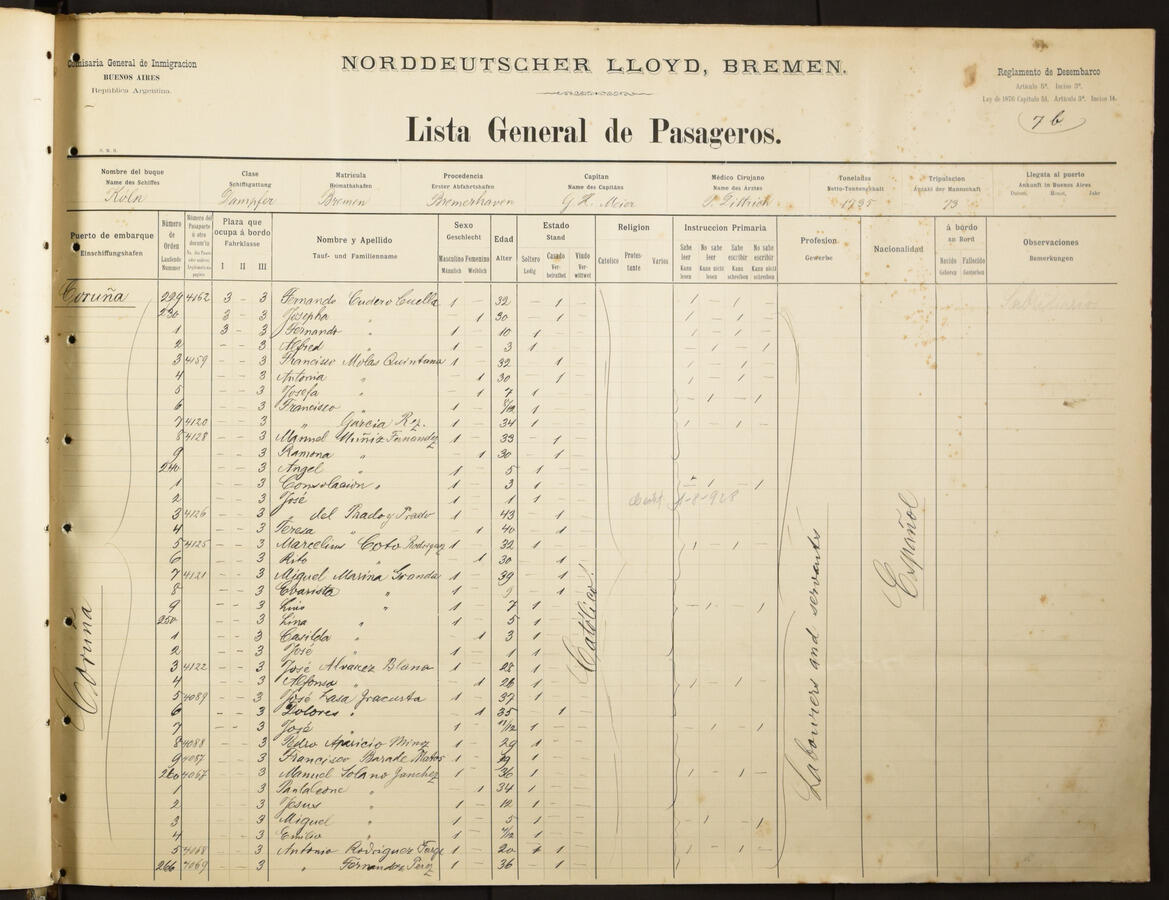 Comisaria General de Inmigracion
BUENOS AIRES
República Argentina.
NORDDEUTSCHER LLOYD, BREMEN.
Lista General de Pasageros.
Reglamento de Desembarco
Artículo 5º. Inciso 3º.
Ley de 1876 Capítulo 51. Artículo 3º. Inciso 14.
7 b
Nombre del buque Clase Matricula Procedencia Capitan Médico Cirujano Toneladas Tripulacion Llegata al puerto
Name des Schiffes Schiffsgattung Heimathshafen Erster Abfahrtshafen Name des Capitäns Name des Arztes Netto-Tonnengehalt Anzahl der Mannschaft Ankunft in Buenos Aires
Datum, Monat, Jahr
Köln Dampfer Bremen Bremerhaven G. H. Meier P. Dittrich 1735 73
Puerto de embarque Einschiffungshafen
Número de Orden Laufende Nummer
Plaza que ocupa á bordo Fahrklasse I II III
Nombre y Apellido Tauf- und Familienname
Sexo Geschlecht Masculino Männlich Femenino Weiblich
Edad Alter
Estado Stand Soltero Ledig Casado Verheirathet Viudo Verwittwet
Religion Catolico Protestante Varios
Instruccion Primaria Sabe leer Kann lesen No sabe leer Kann nicht lesen Sabe escribir Kann schreiben No sabe escribir Kann nicht schreiben
Profesion. Gewerbe
Nacionalidad
á bordo an Bord Nacido Geboren Fallecido Gestorben
Observaciones Bemerkungen
Coruña 229 4162 3 – 3 Fernando Cudero Cuella 1 – 32 – 1 –
230 3 – 3 Josepha " – 1 30 – 1 –
1 3 – 3 Fernando " 1 – 10 1
2 – – 3 Alfred " 1 – 3 1
3 4159 – – 3 Francisco Molas Quintana 1 – 32 – 1
4 – – 3 Antonia " – 1 30 – 1
5 – – 3 Josefa " 1 7 1
6 3 Francisco " 1 – 1
7 4120 3 " Garcia Rz. 1 – 34 1
8 4128 – – 3 Manuel Muñiz Fernandez 1 – 33 – 1
9 – – 3 Ramona " – 1 30 – 1
240 – – 3 Angel " 1 – 5 1
1 – – 3 Consolacion " 1 – 3 1
2 – – 3 José 1 1
3 4126 – – 3 " del Prado y Prado 1 – 43 – 1
4 – – 3 Teresa " 1 40 – 1
5 4125 – – 3 Marcelino Coto Rodriguez 1 – 32 1
6 – – 3 Rita " 1 30 1
7 4121 – – 3 Miguel Marina Granda 1 – 39 – 1
8 – – 3 Evarista " 1
9 – – 3 Luis " 1 – 7 1
250 – – 3 Lina " 1 – 5 1
1 – – 3 Casilda " 1 3 1
2 – – 3 José " 1 1
3 4122 – – 3 José Alvarez Blano 1 – 28 1
4 – – 3 Alfonsa " 1 26 1
5 4089 – – 3 José Lasa Gracusta 1 – 37 1
6 – – 3 Dolores " – 1 35 – 1
7 – – 3 José " 1 – 11/12 1
8 4088 – – 3 Pedro Aparicio Minoz 1 – 29 1
9 4087 – – 3 Francisco Barade Matos 1 – 1
260 4067 – – 3 Manuel Solano Sanchez 1 – 36 – 1
1 – – 3 Pantaleone " – 1 34 1
2 – – 3 Jesus " 1 – 12 1
3 – – 3 Miguel " 1 – 5 1
4 – – 3 Emilio " 1 – 1
5 4068 – – 3 Antonio Rodriguez 1 – 20 1
266 4069 – – 3 " Fernandez Perez 1 – 36 – 1
Coruña
Católico!
Labourers and servants
Español